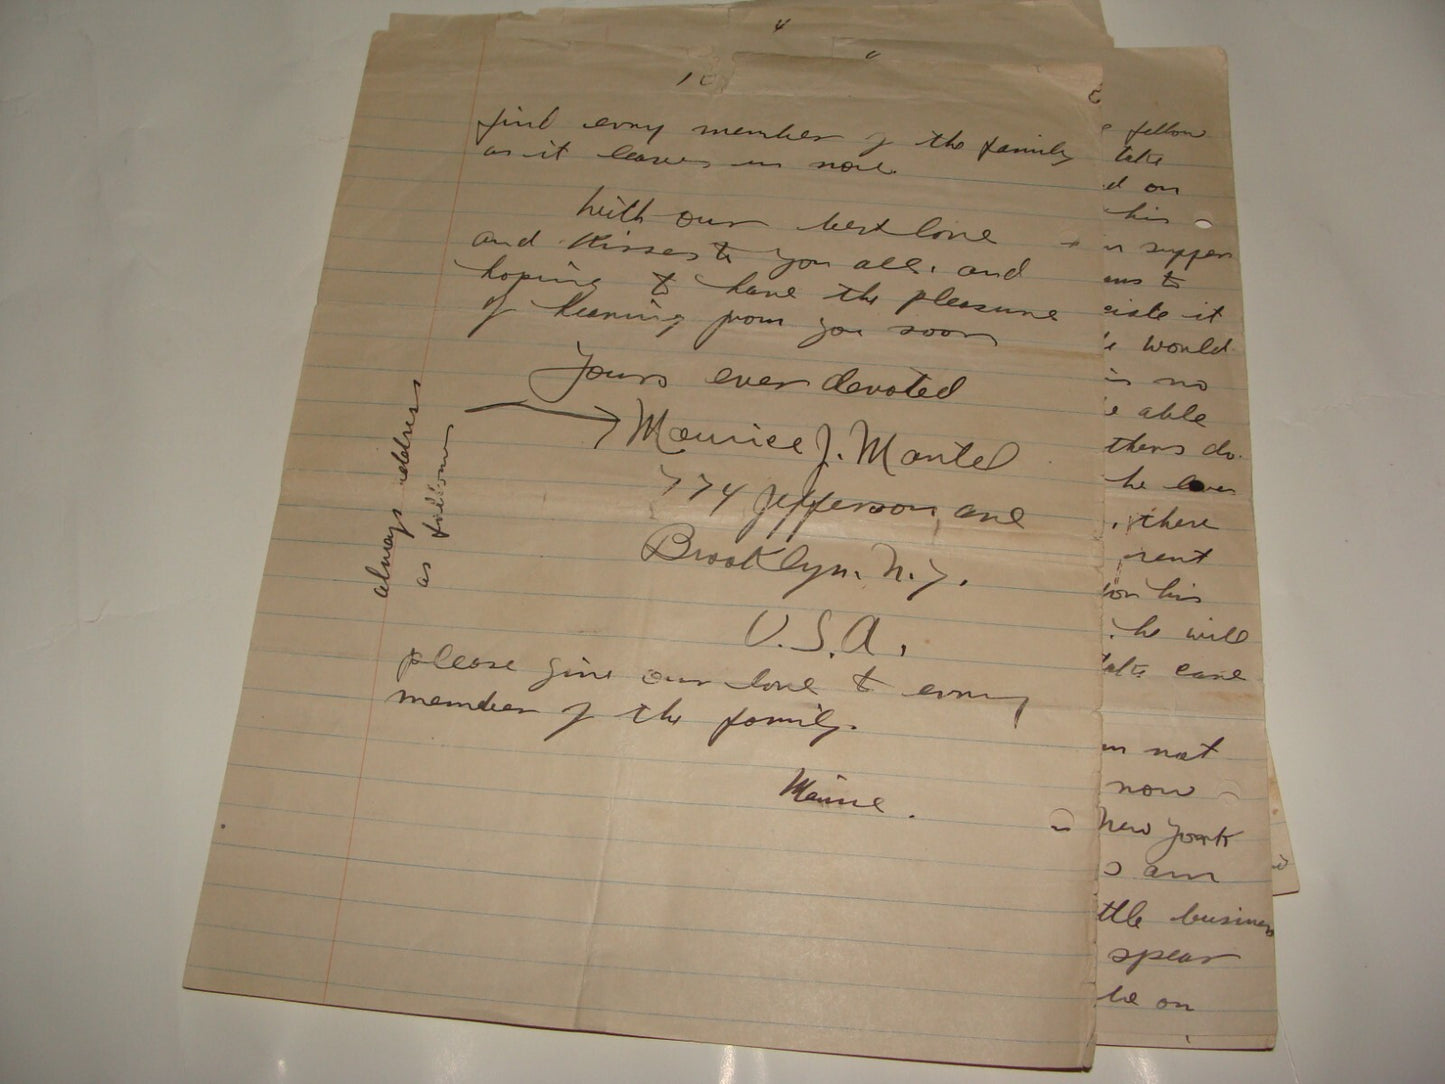 10
find every member of the family
as it leaves us now.
With our best love
and Kisses to you all, and
hoping to have the pleasure
of hearing from you soon
Yours ever devoted
Maurice J. Mantel
774 Jefferson ave
Brooklyn. N.Y.
U.S.A.
always address
as follows
please give our love to every
member of the family.
4
fellow
take
on
his
supper
to
it
would
no
able
do.
he
there
rent
his
he will
care
not
now
New York
am
business
spear
on